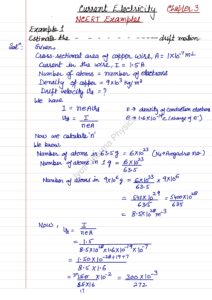 Current Electricity Chapter 3
NCERT Examples
Example 1
Estimate the - - - - - - - - - - - - - - drift motion.
Sol<sup>n</sup>: Given,
Cross-sectional area of copper wire, A = 1×10⁻⁷ m²
Current in the wire, I = 1.5 A
Number of atoms = number of electrons
Density of copper = 9×10³ kg/m³
Drift velocity vd = ?
We have
I = neAvd n → density of conduction electrons
vd = I/neA e → 1.6×10⁻¹⁹ C (charge of e⁻)
Now we calculate 'n'
We know
Number of atoms in 63.5 g = 6×10²³ (NA = Avogadro no.)
Number of atoms in 1 g = 6×10²³/63.5
Number of atoms in 9×10⁶ g = 6×10²³/63.5 × 9×10⁶
= 54×10²⁹/63.5 = 5400×10²⁸/635
= 8.5×10²⁸ m⁻³
Now, vd = I/neA
= 1.5/8.5×10²⁸×1.6×10⁻¹⁹×10⁻⁷
= 1.50×10⁻²⁸⁺¹⁹⁺⁷/8.5×1.6
= 150×10⁻²/85×16 = 300×10⁻³/272